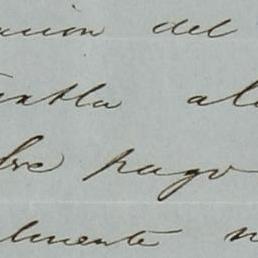 acion del
uatla al
bre pago
lmente n